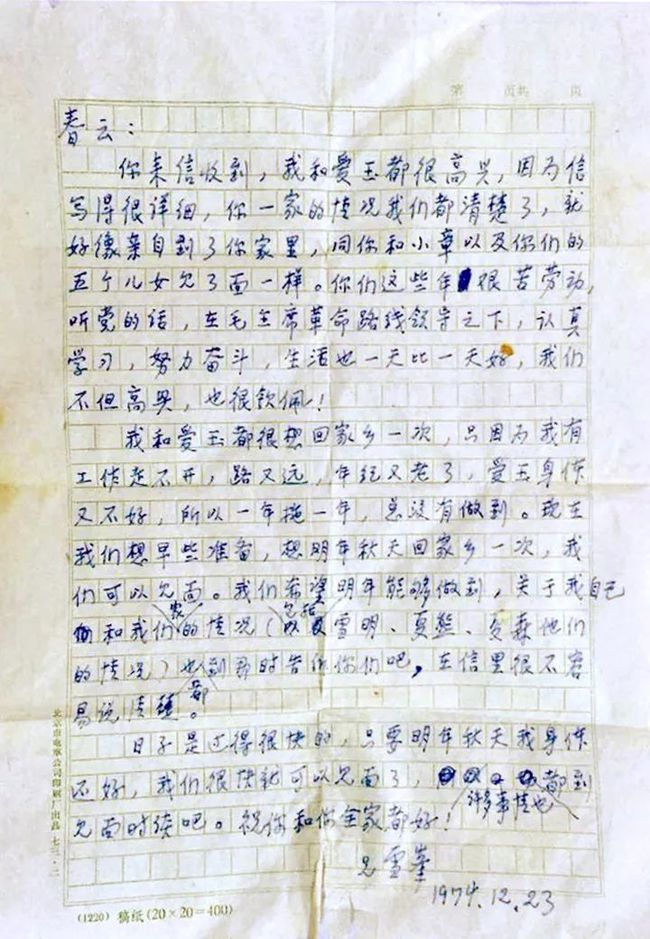 第　页共　页
春云：
你来信收到，我和爱玉都很高兴，因为信
写得很详细，你一家的情况我们都清楚了，就
好像亲自到了你家里，同你和小章以及你们的
五个儿女见了面一样。你们这些年很苦劳动，
听党的话，在毛主席革命路线领导之下，认真
学习，努力奋斗，生活也一天比一天好，我们
不但高兴，也很钦佩！
我和爱玉都很想回家乡一次，只因为我有
工作走不开，路又远，年纪又老了，爱玉身体
又不好，所以一年拖一年，总没有做到。现在
我们想早些准备，想明年秋天回家乡一次，我
们可以见面。我们希望明年能够做到，关于我自己
和我们家的情况（包括雪明、夏熊、夏森他们
的情况）也到那时告诉你们吧，在信里很不容
易说清楚。
日子是过得很快的，只要明年秋天我身体
还好，我们很快就可以见面了，许多事情也都到
见面时续吧。祝你和你全家都好！
兄雪峯
1974.12.23
北京市电车公司印刷厂出品 七三·二
(1220) 稿纸(20×20=400)